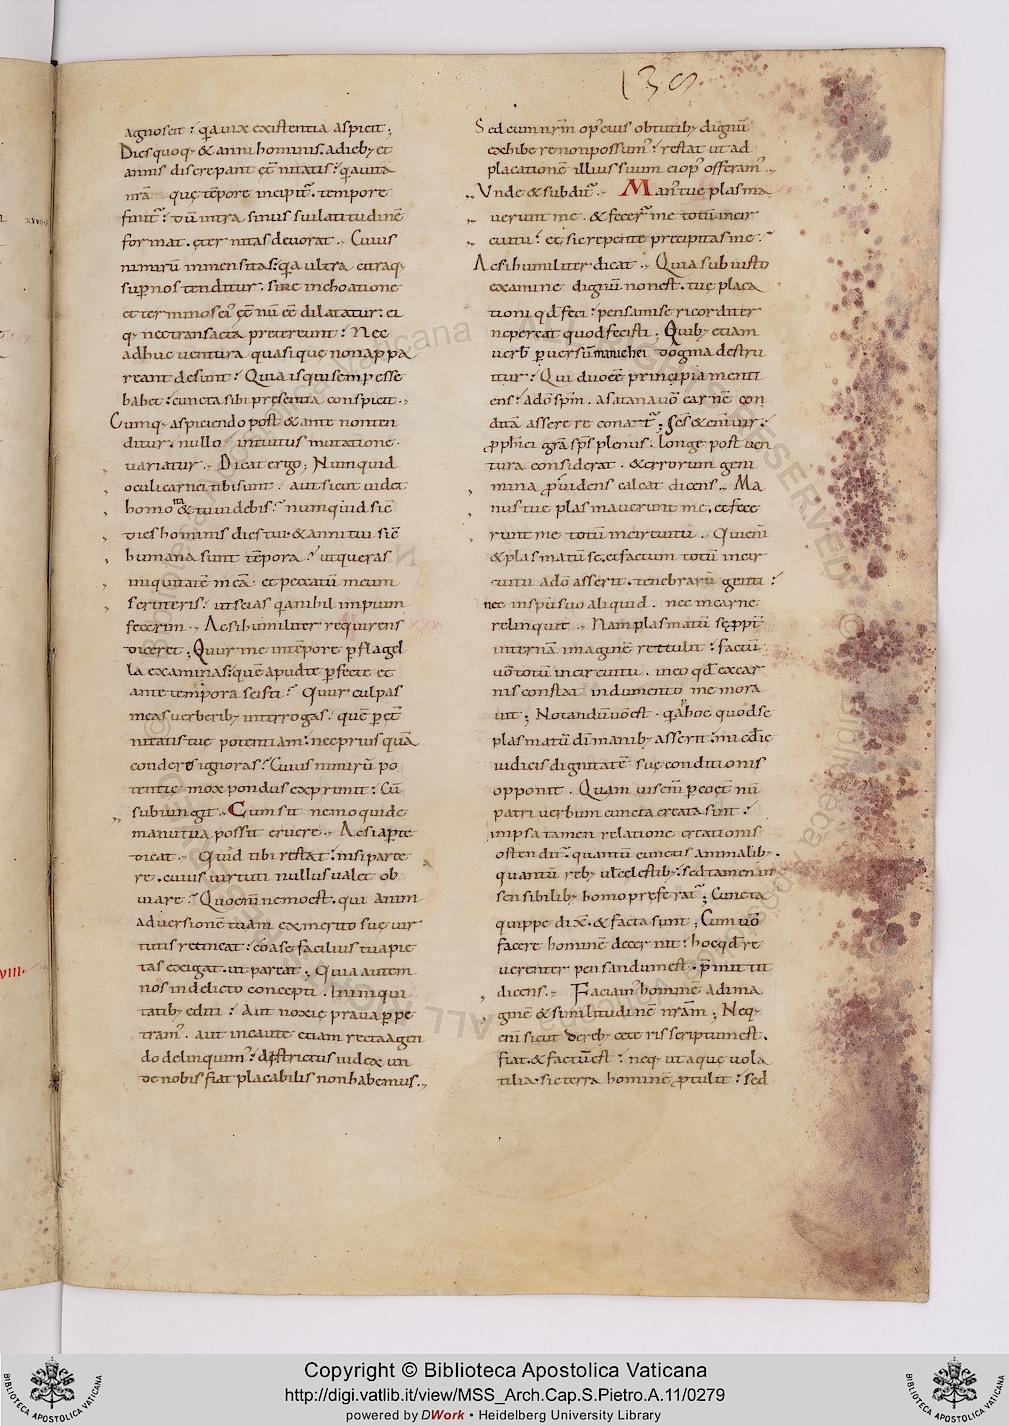 138
agnoscit : qa uix existentia aspicit ;
Dies quoq; & anni hominis. a dieb; et
annis discrepant ęt̄nitatis : qa uita
nr̄a quę tēpore incipit'. tempore
finit' : dū intra sinus sui latitudinē
format. ęternitas deuorat. Cuius
nimirū inmensitas : qa ultra citraq;
sup nos tenditur. sine inchoatione
et termino ei' ęt̄nū eē dilatatur. ei
q; nec transacta pretereunt : Nec
adhuc uentura quasi quę non appa
reant desunt : Quia is qui semp esse
habet : cuncta sibi pręsentia conspicit.
Cumq; aspiciendo post & ante non ten
ditur. nullo intuitus mutatione
uariatur. Dicat ergo ; Numquid
oculi carnei tibi sunt. aut sicut uidet
homo ita & tu uidebis : numquid sic̄
dies hominis dies tui & anni tui sic̄
humana sunt tēpora : ut queras
iniquitatē meā. et peccatū meum
scruteris : ut scias qa nihil impium
fecerim. Ac si humiliter requirens
diceret ; Quur me in tēpore p flagel
la examinas : quē apud te pfecte et
ante tempora scisti : Quur culpas
meas uerberib; interrogas. quē p ęt̄
nitatis tuę potentiam : nec prius quā
conderes ignoras : Cuius nimirū po
tentię mox pondus exprimit : Cū
subiungit. Cum sit nemo qui de
manu tua possit eruere. Ac si apte
dicat. Quid tibi restat : nisi parce
re. cuius uirtuti nullus ualet ob
uiare : Quo enī nemo est. qui anim
aduersionē tuam ex merito suę uir
tutis retineat : eo a se facilius tua pie
tas exigat. ut parcat ; Quia autem
nos in delicto concepti. In iniqui
tatib; editi : Aut noxię praua ppe
tram'. aut incaute etiam recta agen
do delinquim' : districtus iudex un
de nobis fiat placabilis non habemus.
Sed cum nr̄m op' eius obtutib; dignū
exhibere non possum' : restat ut ad
placationē illius suum ei op' offeram'.
Vnde & subdit'. Man' tuę plasma
uerunt me. & fecer' me totū in cir
cuitu : et sic repente precipitas me :
Ac si humiliter dicat. Quia sub iusto
examine dignū non est. tuę placa
tioni qđ feci : pensa misericorditer
ne pereat quod fecisti. Quib; etiam
uerb' puersū manichei dogma destru
itur : Qui duo eē principia menti
ens : a do sp̄m. a satana uo carnē con
ditā asserere conat' ; Scs̄ & enī uir :
pphtici gr̄a sps̄ plenus. longe post uen
tura considerat. & errorum geni
mina puidens calcat dicens. Ma
nus tuę plasmauerunt me. et fece
runt me totū in circuitu. Qui enī
& plasmatū se. et factum totū in cir
cuitu a dō asserit. tenebrarū genti :
nec in spū suo aliquid. nec in carne
relinquit. Nam plasmatū se ppt'
internā imaginē rettulit : factū
uō totū in circuitu. in eo qđ ex car
nis constat indumento memora
uit ; Notandū uō est. qa hoc quod se
plasmatū di manib; asserit : mi cdie
iudicis dignitatē suę conditionis
opponit. Quam uis enī p coęt̄nū
patri uerbum cuncta creata sunt :
in ipsa tamen relatione creationis
ostendit' : quantū cunctis animalib;
quantū reb; ul celestib; sed tamen in
sensibilib; homo preferat' ; Cuncta
quippe dix̄. & facta sunt ; Cum uō
facere hominē decernit : hoc qđ re
uerenter pensandum est. p̄mittit
dicens. Faciam' hominē ad ima
ginē & similitudinē nr̄am ; Neq;
enī sicut de reb; ceteris scriptum est.
fiat. & factū est : neq; ut aquę uola
tilia. sic terra hominē ptulit : sed
Copyright © Biblioteca Apostolica Vaticana
http://digi.vatlib.it/view/MSS_Arch.Cap.S.Pietro.A.11/0279
powered by DWork • Heidelberg University Library